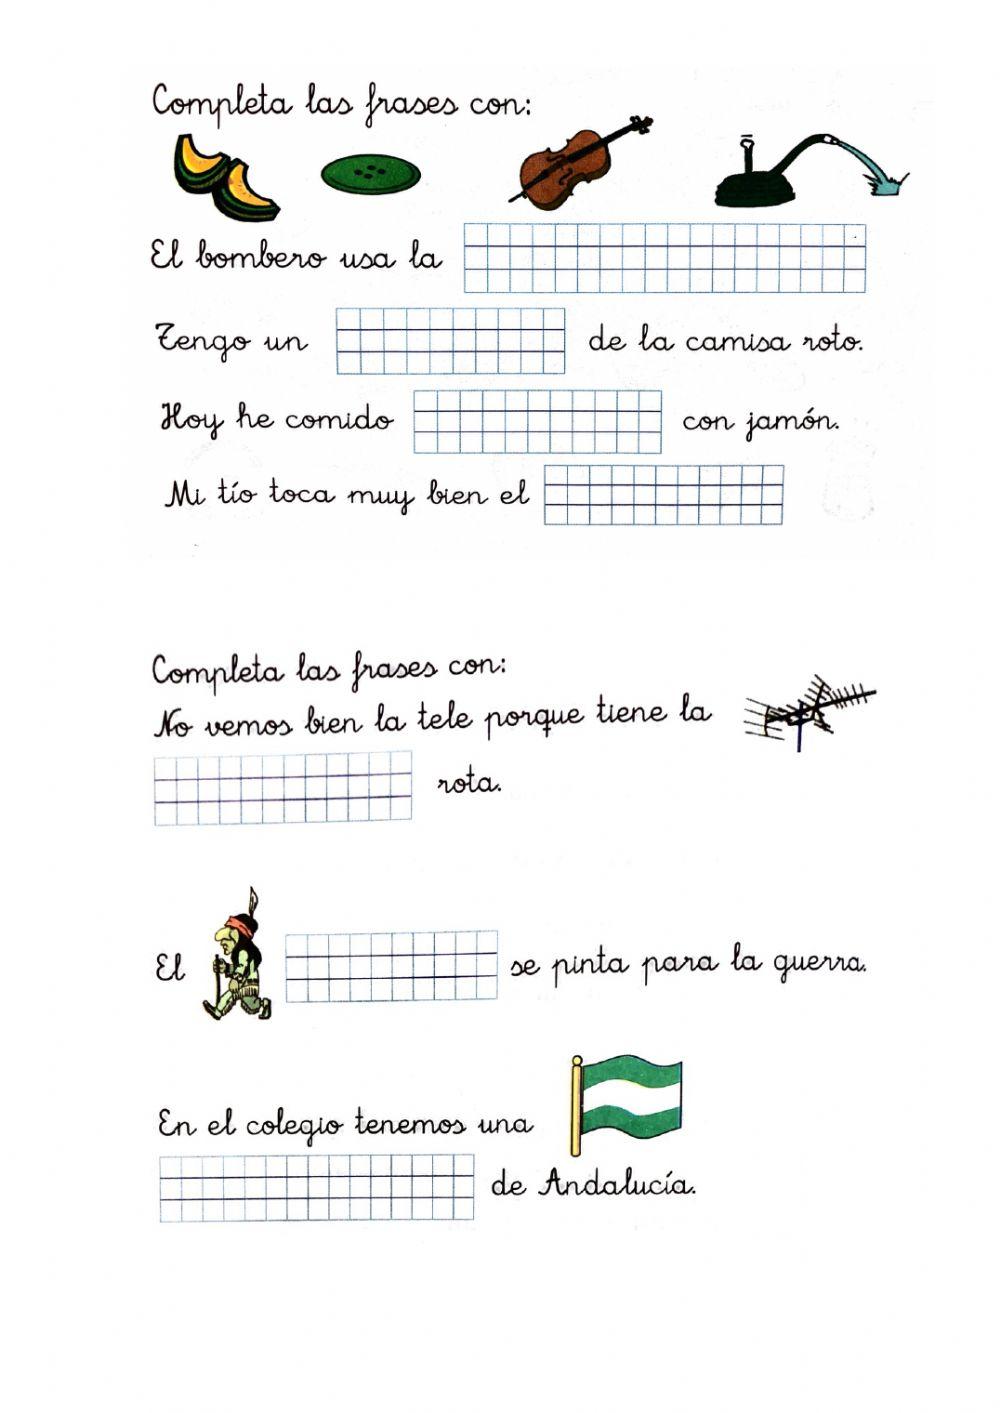 Completa las frases con:
El bombero usa la
Tengo un de la camisa roto.
Hoy he comido con jamón.
Mi tío toca muy bien el
Completa las frases con:
No vemos bien la tele porque tiene la
rota.
El se pinta para la guerra.
En el colegio tenemos una
de Andalucía.